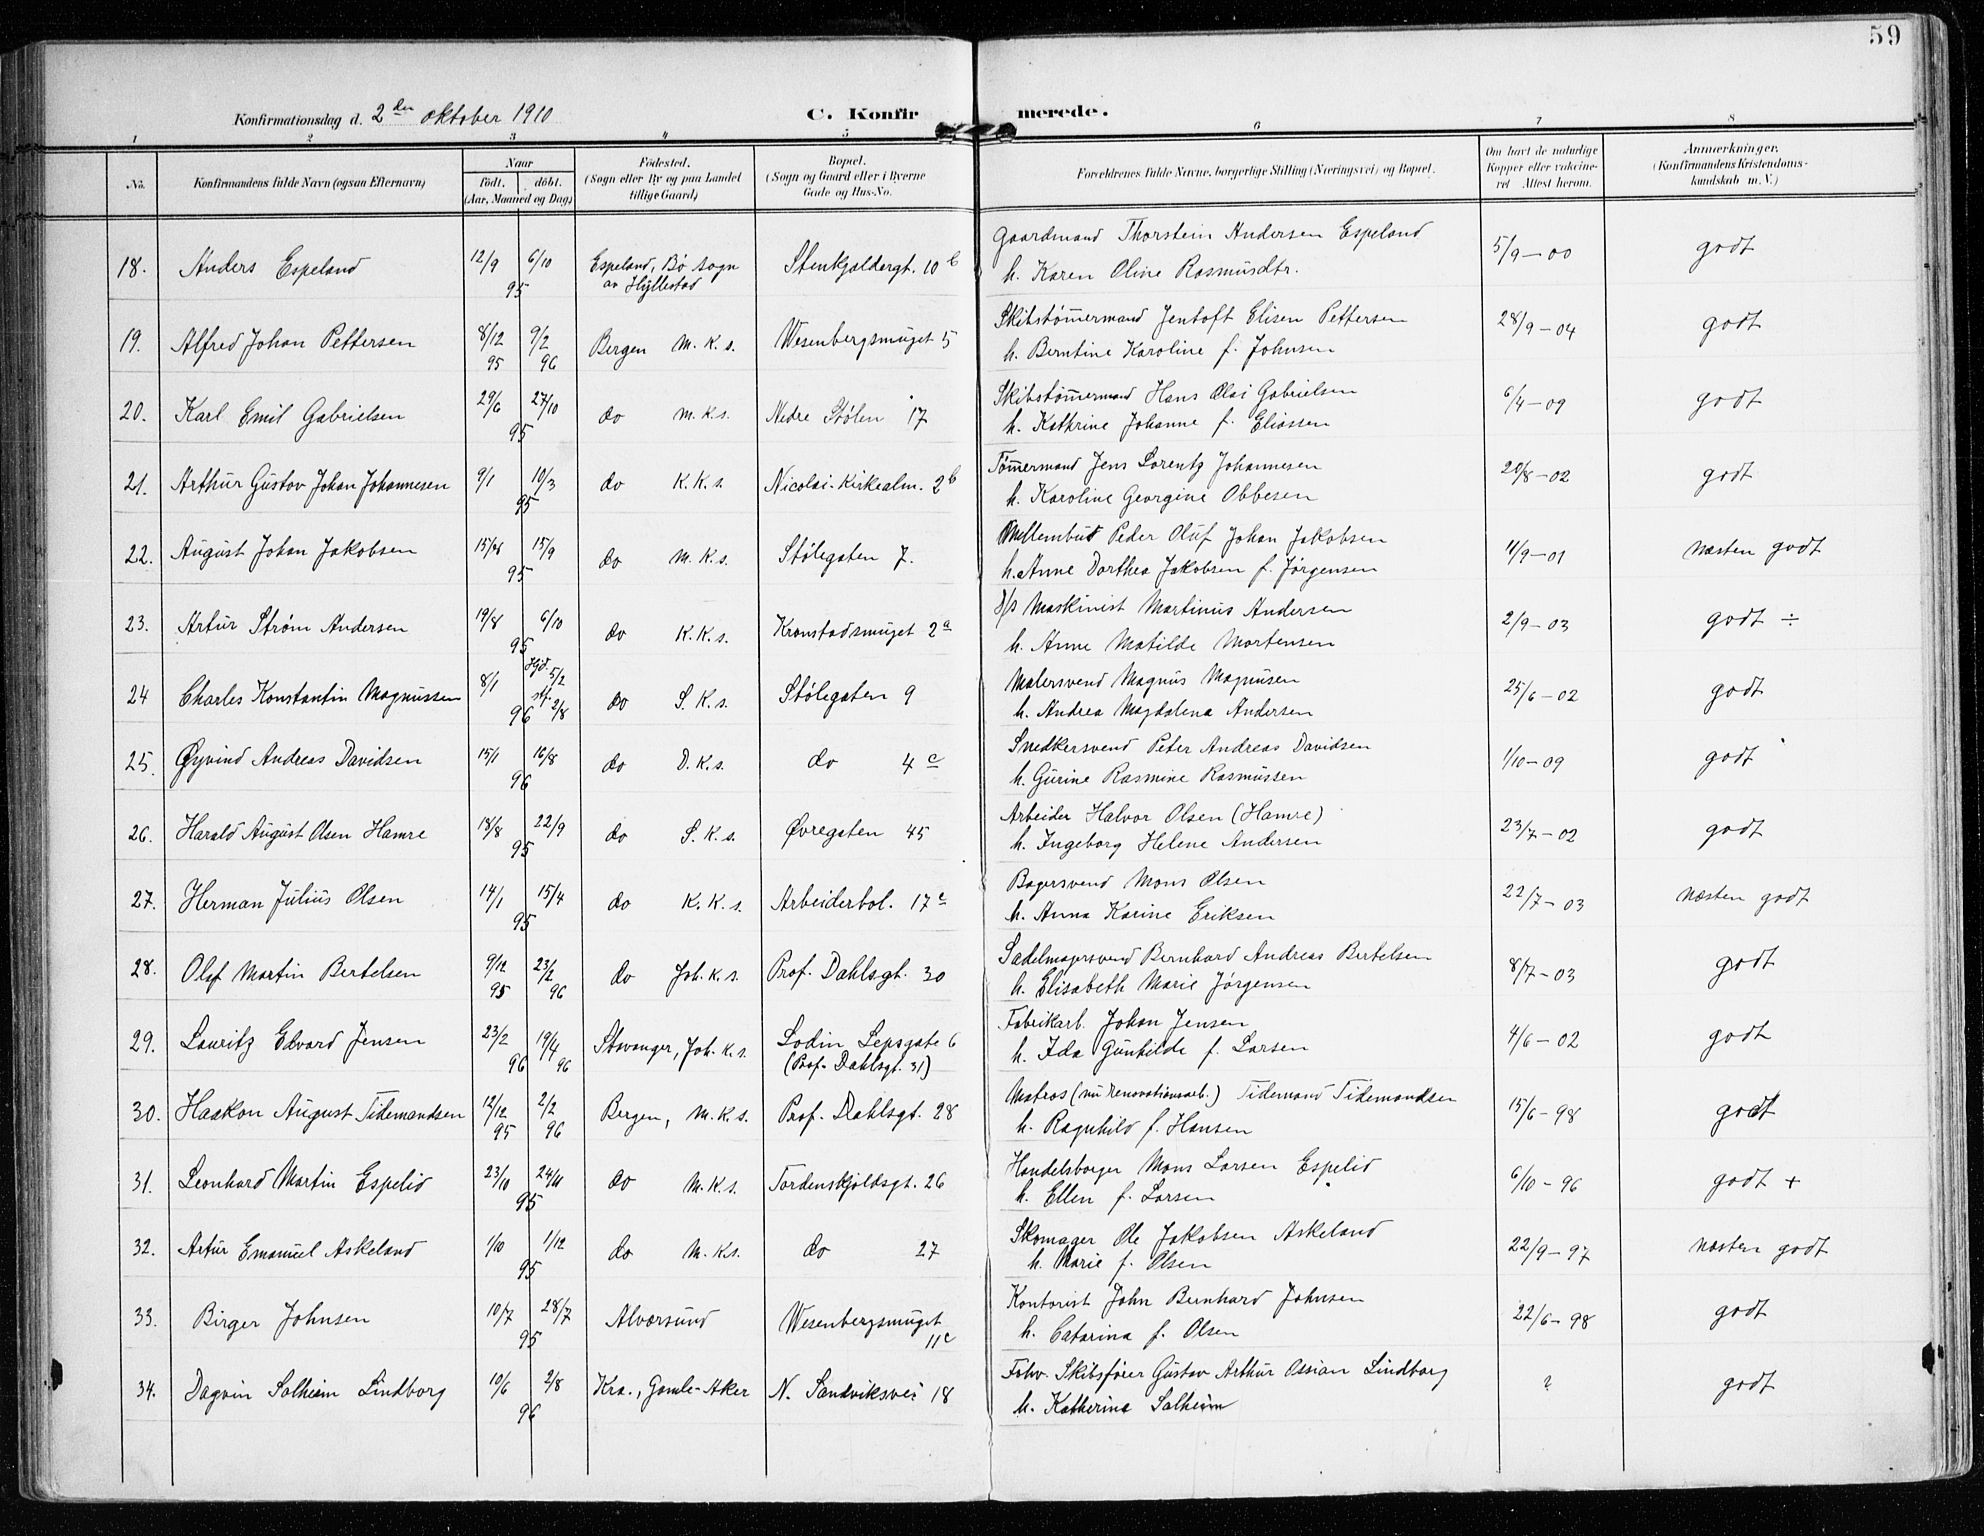 59
Konfirmationsdag d. 2den oktober 1910
C. Konfirmerede.
1 2 3 4 5 6 7 8
No.
Konfirmandens fulde Navn (ogsaa Efternavn)
Naar
født. døbt.
(Aar, Maaned og Dag)
Fødested.
(Sogn eller By og paa Landet
tillige Gaard)
Bopæl.
(Sogn og Gaard eller i Byerne
Gade og Hus-No.
Forældrenes fulde Navne, borgerlige Stilling (Næringsvei) og Bopæl.
Om havt de naturlige
Kopper eller vaksine-
ret Attest herom.
Anmerkninger.
(Konfirmandens Kristendoms-
kundskab m. V.)
18. Anders Espeland 12/9 6/10 95 Espeland, Bø sogn av Hyllestad Stenkjeldergt. 10 b Gaardmand Thorstein Andersen Espeland 5/9 – 00 godt
h. Karen Oline Rasmusdtr.
19. Alfred Johan Pettersen 8/12 95 9/2 96 Bergen M. K. s. Wesenbergsmuget 5 Skibstømmermand Jentoft Elisen Pettersen 28/9 – 04 godt
h. Berntine Karoline f. Johnsen
20. Karl Emil Gabrielsen 29/6 27/10 95 do M. K. s. Nedre Stølen 17 Skibstømmermand Hans Olai Gabrielsen 6/4 – 09 godt
h. Kathrine Johanne f. Eliassen
21. Arthur Gustav Johan Johannesen 9/1 10/3 95 do K. K. s. Nicolai-Kirkealm. 2 b Tømmermand Jens Lorentz Johannesen 20/8 – 02 godt
h. Karoline Georgine Obbesen
22. August Johan Jakobsen 15/9 95 do M. K. s. Stølegaten 7. Mellembud Peder Oluf Johan Jakobsen 11/9 – 01 næsten godt
h. Anne Dorthea Jakobsen f. Jørgensen
23. Artur Strøm Andersen 19/8 6/10 95 do K. K. s. Kronstadsmuget 2 a D/s Maskinist Martinus Andersen 2/9 – 03 godt ÷
h. Anne Matilde Mortensen
24 Charles Konstantin Magnussen 8/1 Hjd. 5/2 stf. 2/8 96 do S. K. s. Stølegaten 9 Malersvend Magnus Magnusen 25/6 – 02 godt
h. Andrea Magdalena Andersen
25. Øyvind Andreas Davidsen 15/1 16/8 96 do D. K. s. do 4 c Snedkersvend Peter Andreas Davidsen 1/10 – 09 godt
h. Gurine Rasmine Rasmussen
26. Harald August Olsen Hamre 18/8 22/9 95 do S. K. s. Øvregaten 45 Arbeider Halvor Olsen (Hamre) 23/7 – 02 godt
h. Ingeborg Helene Andersen
27. Herman Julius Olsen 14/1 15/4 95 do K. K. s. Arbeiderbol. 17 c Bagersvend Mons Olsen 22/7 – 03 næsten godt
h. Anna Karine Eriksen
28. Olaf Martin Bertelsen 9/12 95 23/2 96 do Joh. K. s. Prof. Dahlsgt. 30 Sadelmagersvend Bernhard Andreas Bertelsen 8/7 – 03 godt
h. Elisabeth Marie Jørgensen
29. Lauritz Edvard Jensen 23/2 96 19/4 96 Stavanger, Joh. K. s. Lodin Lepsgate 6 (Prof. Dahlsgt. 31) Fabrikarb. Johan Jensen 4/6 – 02 godt
h. Ida Gunhilde f. Larsen
30. Haakon August Tidemandsen 12/12 95 2/2 96 Bergen, M. K. s. Prof. Dahlsgt. 28 Matros (nu renovationsarb.) Tidemand Tidemandsen 15/6 – 98 godt
h. Ragnhild f. Hansen
31. Leonhard Martin Espelid 23/10 24/11 95 do M. K. s. Tordenskjoldsgt. 26 Handelsborger Mons Larsen Espelid 6/10 – 96 godt +
h. Ellen f. Larsen
32. Artur Emanuel Askeland 1/10 1/12 95 do M. K. s. do 27 Skomager Ole Jakobsen Askeland 22/9 – 97 næsten godt
h. Marie f. Olsen
33. Birger Johnsen 10/7 28/7 95 Alversund Wesenbergsmuget 11 c Kontorist John Bernhard Johnsen 22/6 – 98 godt
h. Catarina f. Olsen
34. Dagvin Salheim Lindborg 10/6 2/8 96 Kra., Gamle-Aker N. Sandviksvei 18 Fohv. Skibsfører Gustav Arthur Ossian Lindborg ? godt
h. Katherina Salheim